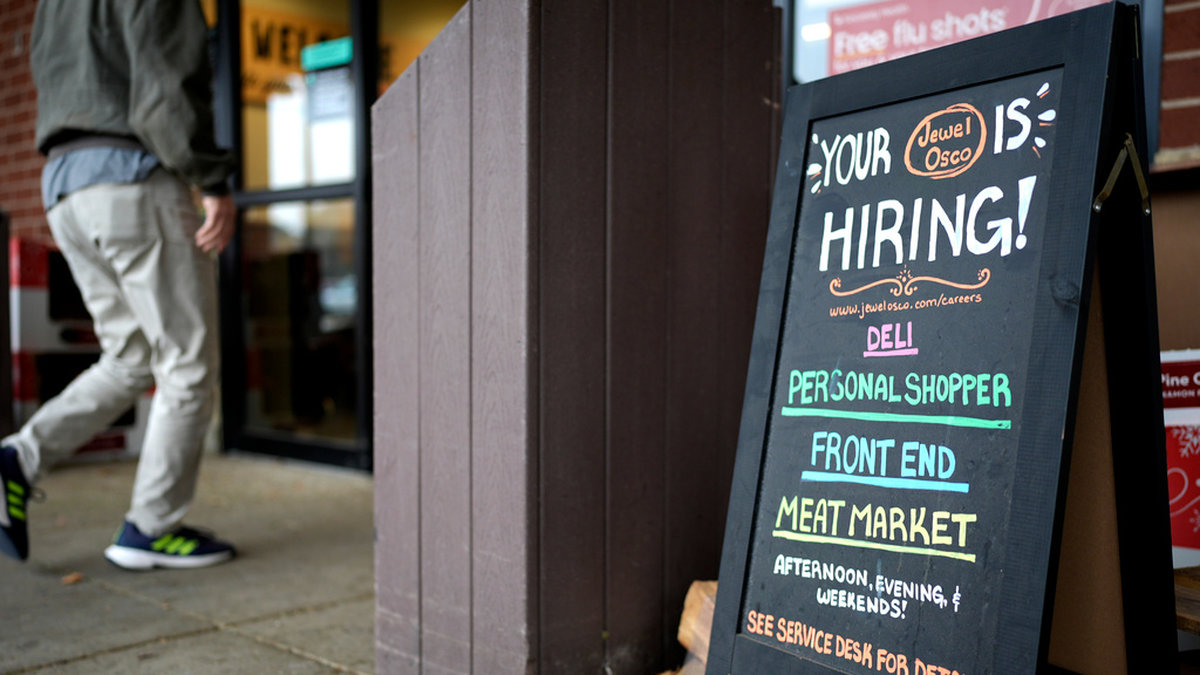 Free flu shots*
YOUR Jewel Osco IS
HIRING!
www.jewelosco.com/careers
DELI
PERSONAL SHOPPER
FRONT END
MEAT MARKET
AFTERNOON, EVENING, &
WEEKENDS!
SEE SERVICE DESK FOR